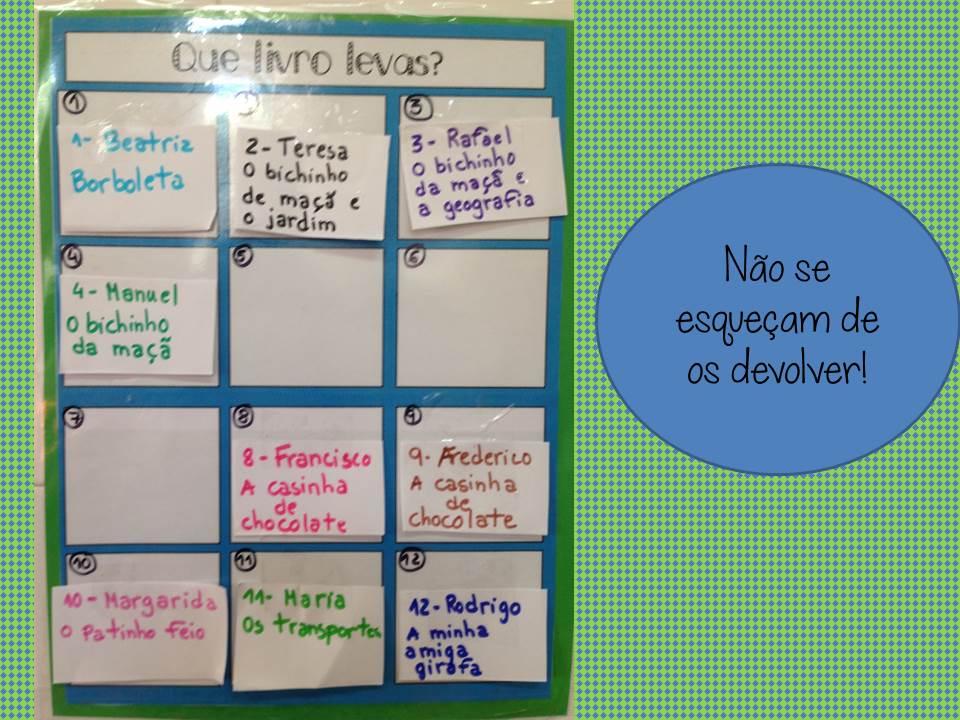 Que livro levas?
1
1- Beatriz
Borboleta
2- Teresa
O bichinho
de maçã e
o jardim
3
3- Rafael
O bichinho
da maçã e
a geografia
4
4- Manuel
O bichinho
da maçã
5
6
7
8
8- Francisco
A casinha
de
chocolate
9
9- Frederico
A casinha
de
chocolate
10
10- Margarida
O Patinho Feio
11
11- Maria
Os transportes
12
12- Rodrigo
A minha
amiga
girafa
Não se
esqueçam de
os devolver!